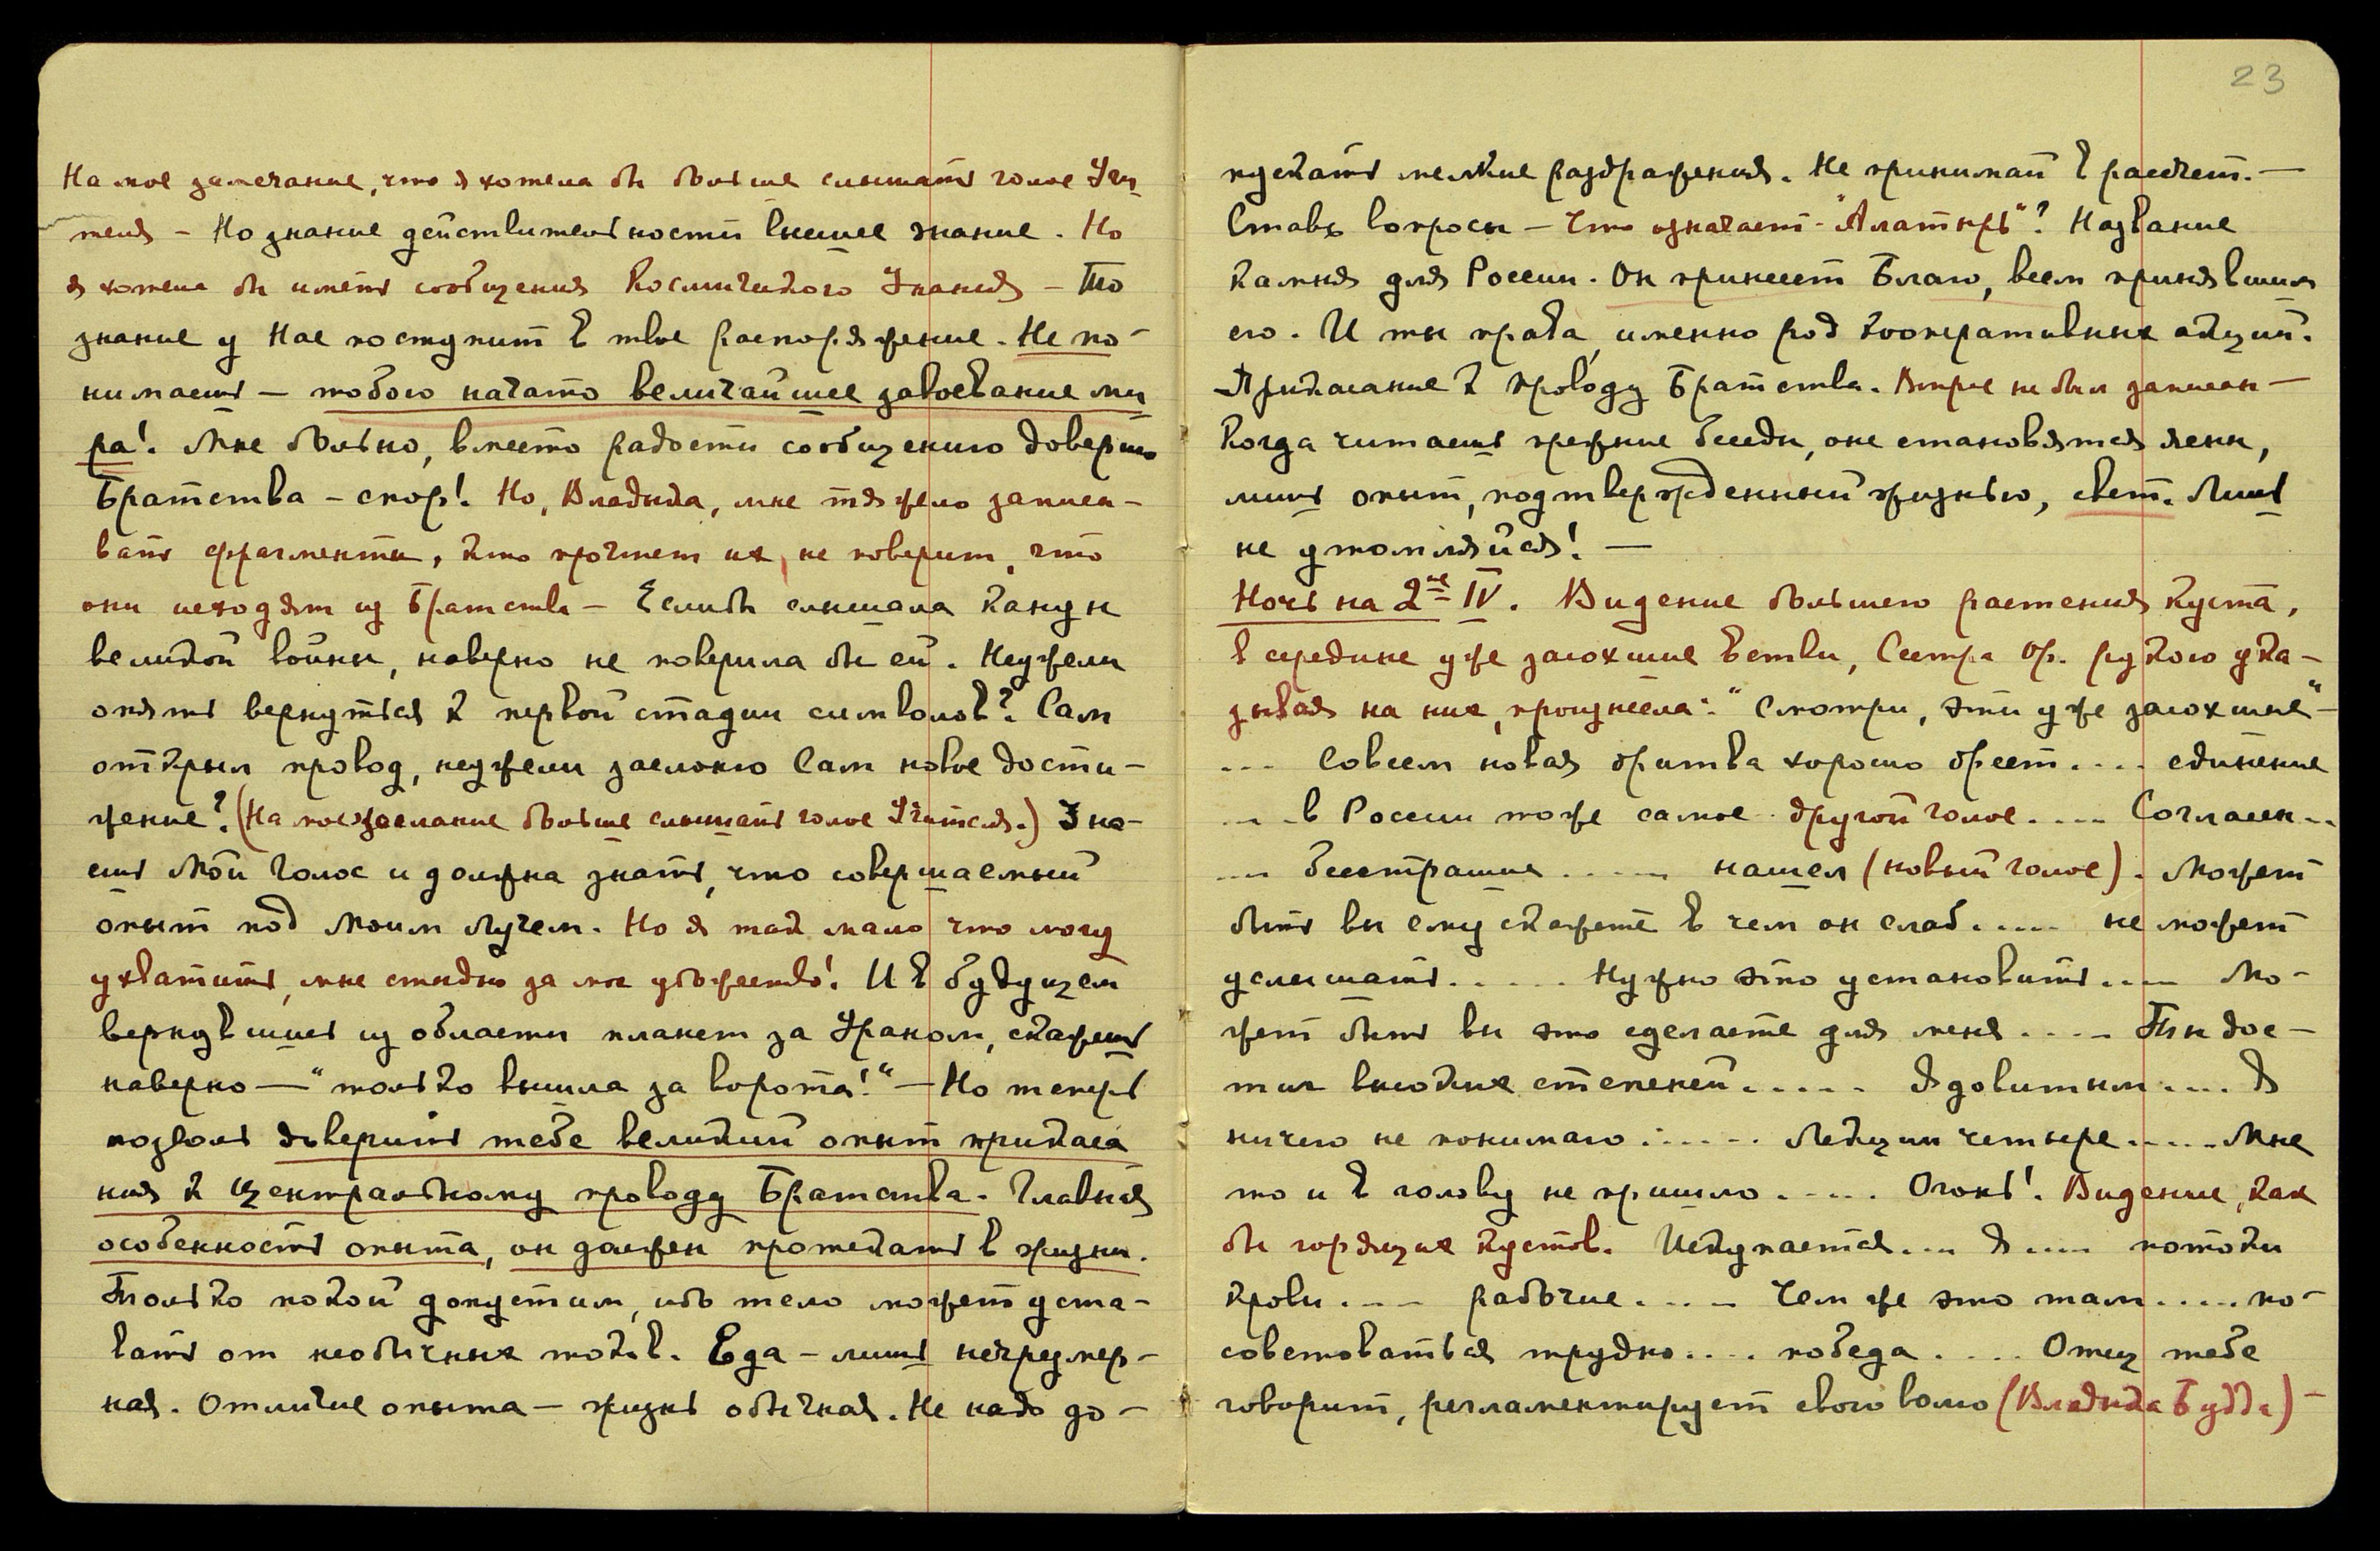 На мое замечание, что я хотела бы больше слышать голос Учи
теля – Но знание действительности высшее знание. Но
я хотела бы иметь сообщения Космического Знания – То
знание у Нас поступит в твое распоряжение. Не по-
нимаешь – тобою начато величайшее завоевание ми
ра! Мне больно, вместо радости сообщению доверию
Братства – спор! Но, Владыка, мне тяжело записы-
вать фрагменты, кто прочтет их, не поверит, что
они исходят из Братства – Если бы слышала канун
великой войны, наверно не поверила бы ей. Неужели
опять вернуться к первой стадии символов? Сам
открыл провод, неужели заслоню Сам новое дости-
жение? (На пожелание больше слышать голос Учителя.) Зна-
ешь Мой Голос и должна знать, что совершаемый
опыт под Моим Лучем. Но я так мало что могу
ухватить, мне стыдно за мое убожество! И в будущем
вернувшись из области планет за Ураном, скажешь
наверно — "только вышла за ворота!" — Но теперь
позволь доверить тебе великий опыт прикаса
ния к центральному проводу Братства. Главная
особенность опыта, он должен протекать в жизни.
Только покой допустим, ибо тело может уста-
вать от необычных токов. Еда – лишь нечрезмер-
ная. Отличие опыта – жизнь обычная. Не надо до-
23
пускать мелкие раздражения. Не принимай в рассчет. —
Ставь вопросы – Что означает - "Алатырь"? Название
камня для России. Он принесет Благо, всем принявшим
его. И ты права, именно род кооперативных акций.
Прикасание к проводу Братства. Вопрос не был записан —
Когда читаешь прежние беседы, оне становятся ясны,
лишь опыт, подтвержденный жизнью, свет. Лишь
не утомляйся! —
Ночь на 2ое IV. Видение большего растения куста,
в середине уже засохшие ветви, Сестра Ор. рукою ука-
зывая на них, произнесла: "Смотри, эти уже засохшие" –
... Совсем новая бритва хорошо бреет .... единение
.... в России тоже самое другой голос .... Согласен..
.... бесстрашие ..... нашел (новый голос). Может
быть вы ему скажете в чем он слаб ..... не может
услышать ..... Нужно это установить .... Мо-
жет быть вы это сделаете для меня .... Ты дос-
тиг высоких степеней ..... Ядовитым .... Я
ничего не понимаю ...... Лекции четыре ..... Мне
то и в голову не пришло ..... Огонь! Видение, как
бы горящих кустов. Искупается .... Я .... потоки
крови .... рабочие .... Чем же это там ..... по-
советоваться трудно .... победа .... Отец тебе
говорит, регламентирует свою волю (Владыка Будда) –